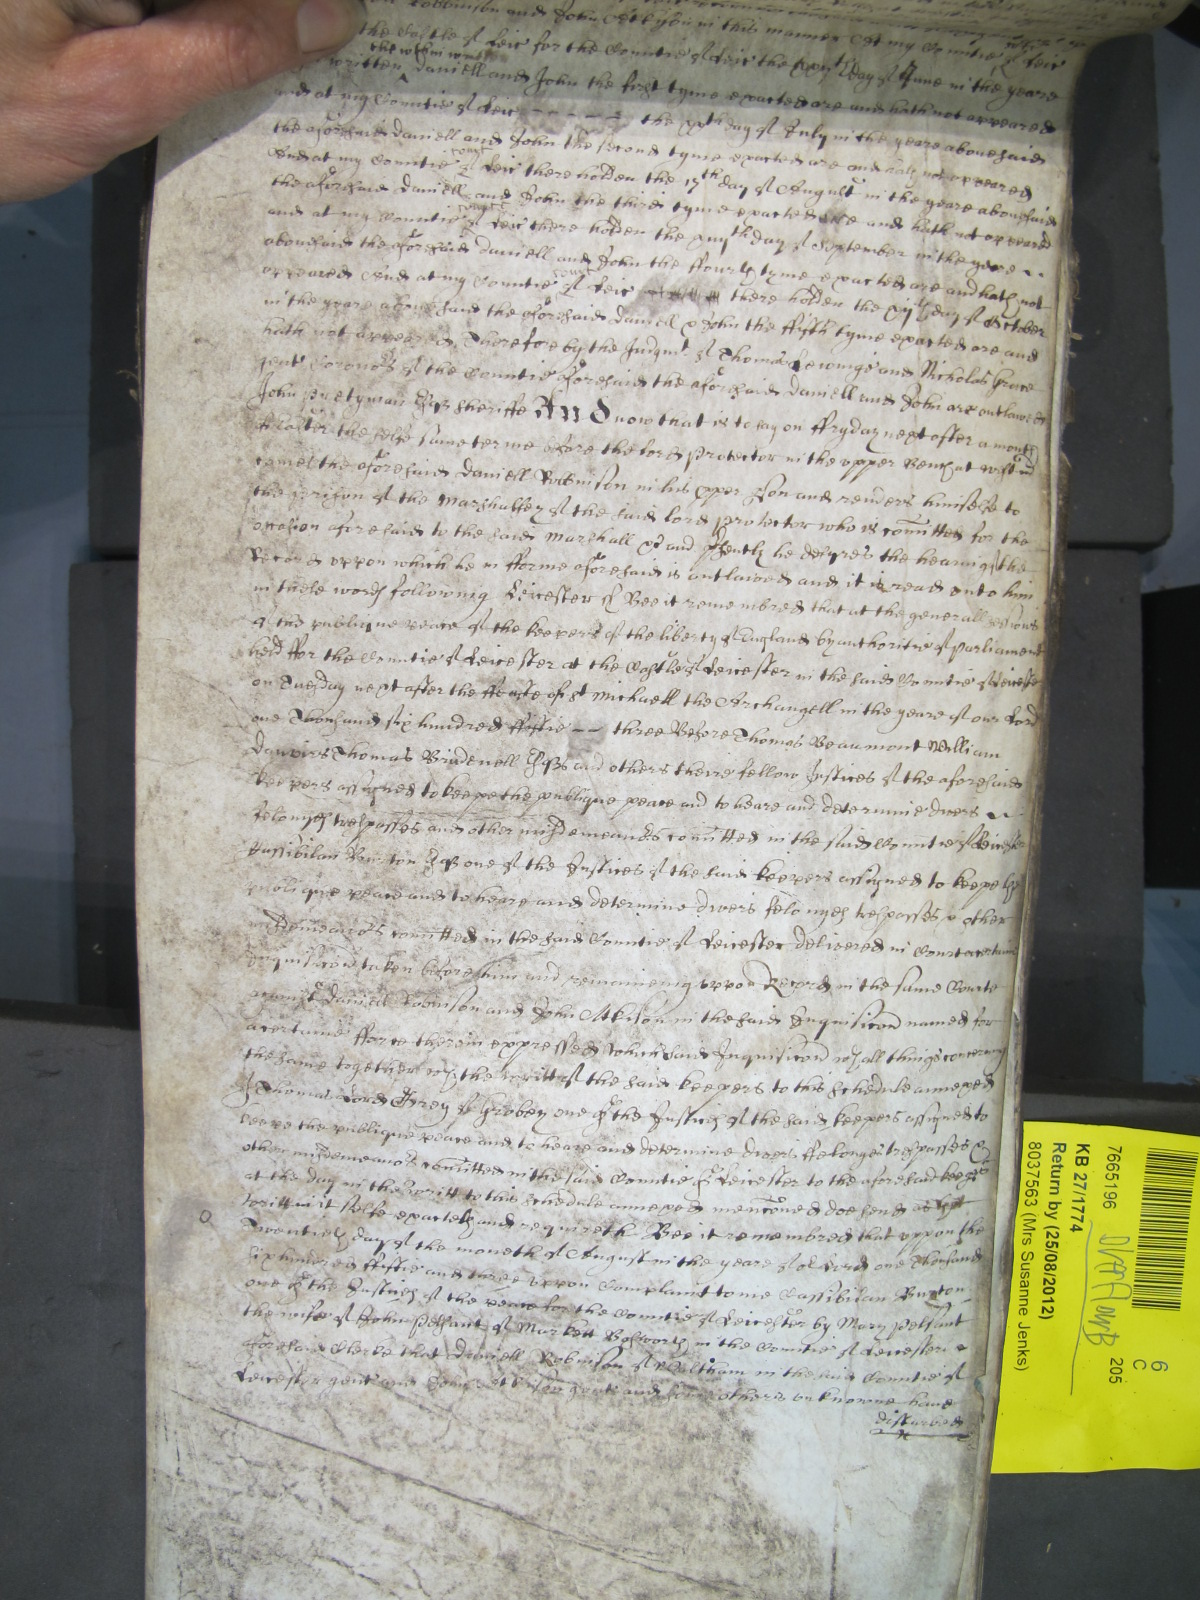 Robbinson and John Atkyson in this manner At my Countie Court
the Castle of Leic for the Countie of Leic the day of June in the yeare
the within written
written Daniell and John the first tyme exacted are and hath not appeared
and at my Countie of Leic - - - - - the xxth day of July in the yeare abovesaid
the aforesaid Daniell and John the second tyme exacted are and hath not appeared
And at my Countie Court of Leic there holden the 17th day of August in the yeare abovesaid
the aforesaid Daniell and John the third tyme exacted are and hath not appeared
and at my Countie Court of Leic there holden the day of September in the yeare
abovesaid the aforesaid Daniell and John the ffourth tyme exacted are and hath not
appeared And at my Countie Court of Leic there holden the day of October
in the yeare abovesaid the aforesaid Daniell & John the ffifth tyme exacted are and
hath not appeared Therefore by the Judgmt of Thomas and Nicholas
gent Coronors of the Countie aforesaid the aforesaid Daniell and John are outlawed
John Pretyman Esqr Sheriffe And now that is to say on ffryday next after a moneth
of Easter the selfe same terme before the lord Protector in the upper Bench at Westmr
comes the aforesaid Daniell Robbinson in his pper pson and renders himselfe to
the prison of the Marshalsey of the said lord Protector who is comitted for the
occasion aforesaid to the said Marshall &c and psently he desyres the hearing of the
Record uppon which he in fforme aforesaid is outlawed and it is read unto him
in these words following Leicester ss Bee it remembred that at the generall sessions
of the publique peace of the keepers of the liberty of England by authoritie of parliament
held ffor the Countie of Leicester at the Castle of Leicester in the said Countie of Leicester
on Tuesday next after the ffeaste of St Michaell the Archangell in the yeare of our Lord
one Thousand six hundred ffiftie - - three Before Thomas Beaumont William
Danvers Thomas Brudenell Esqrs and others theire fellow Justices of the aforesaid
keepers assigned to keepe the publique peace and to heare and determine divers
felonyes trespasses and other misdemeanors comitted in the said Countie of Leicester
Cassibilan Burton Esqr one of the Justices of the said keepers assigned to keepe the
publique peace and to heare and determine divers felonyes trespasses & other
misdemeanors comitted in the said Countie of Leicester delivered in Court a certaine
Inquisicon taken before him and remaineing uppon Record in the same Courte
against Daniell Robinson and John Atkison in the said Inquisicon named for
a certaine fforce therein expressed Which said Inquisicon wth all things concerning
the same together wth the writt of the said keepers to this schedule annexed
I Thomas Lord Grey of Grobey one of the Justices of the said keepers assigned to
keepe the publique peace and to heare and determine divers ffelonyes trespasses &
other misdemeanors comitted in the said Countie of Leicester to the aforesaid keepers
at the day in the writt to this schedule annexed menconed doe send as the
writt in it selfe exacteth and requireth Bee it remembred that uppon the
Twentieth day of the moneth of August in the yeare of or Lord one Thousand
six hundred ffiftie and three uppon Complaint to me Cassibilan Burton
one of the Justices of the peace for the Countie of Leicester by Mary Pelsant
the wife of John Pelsant of Markett Bosworth in the Countie of Leicester
aforesaid Clerke that Daniell Robinson of Waltham in the said Countie of
Leicester gent and John Atkison gent and others unknowne have
disturbed
7665196
KB 27/1774
Return by (25/08/2012)
8037563 (Mrs Susanne Jenks)
6
C
205